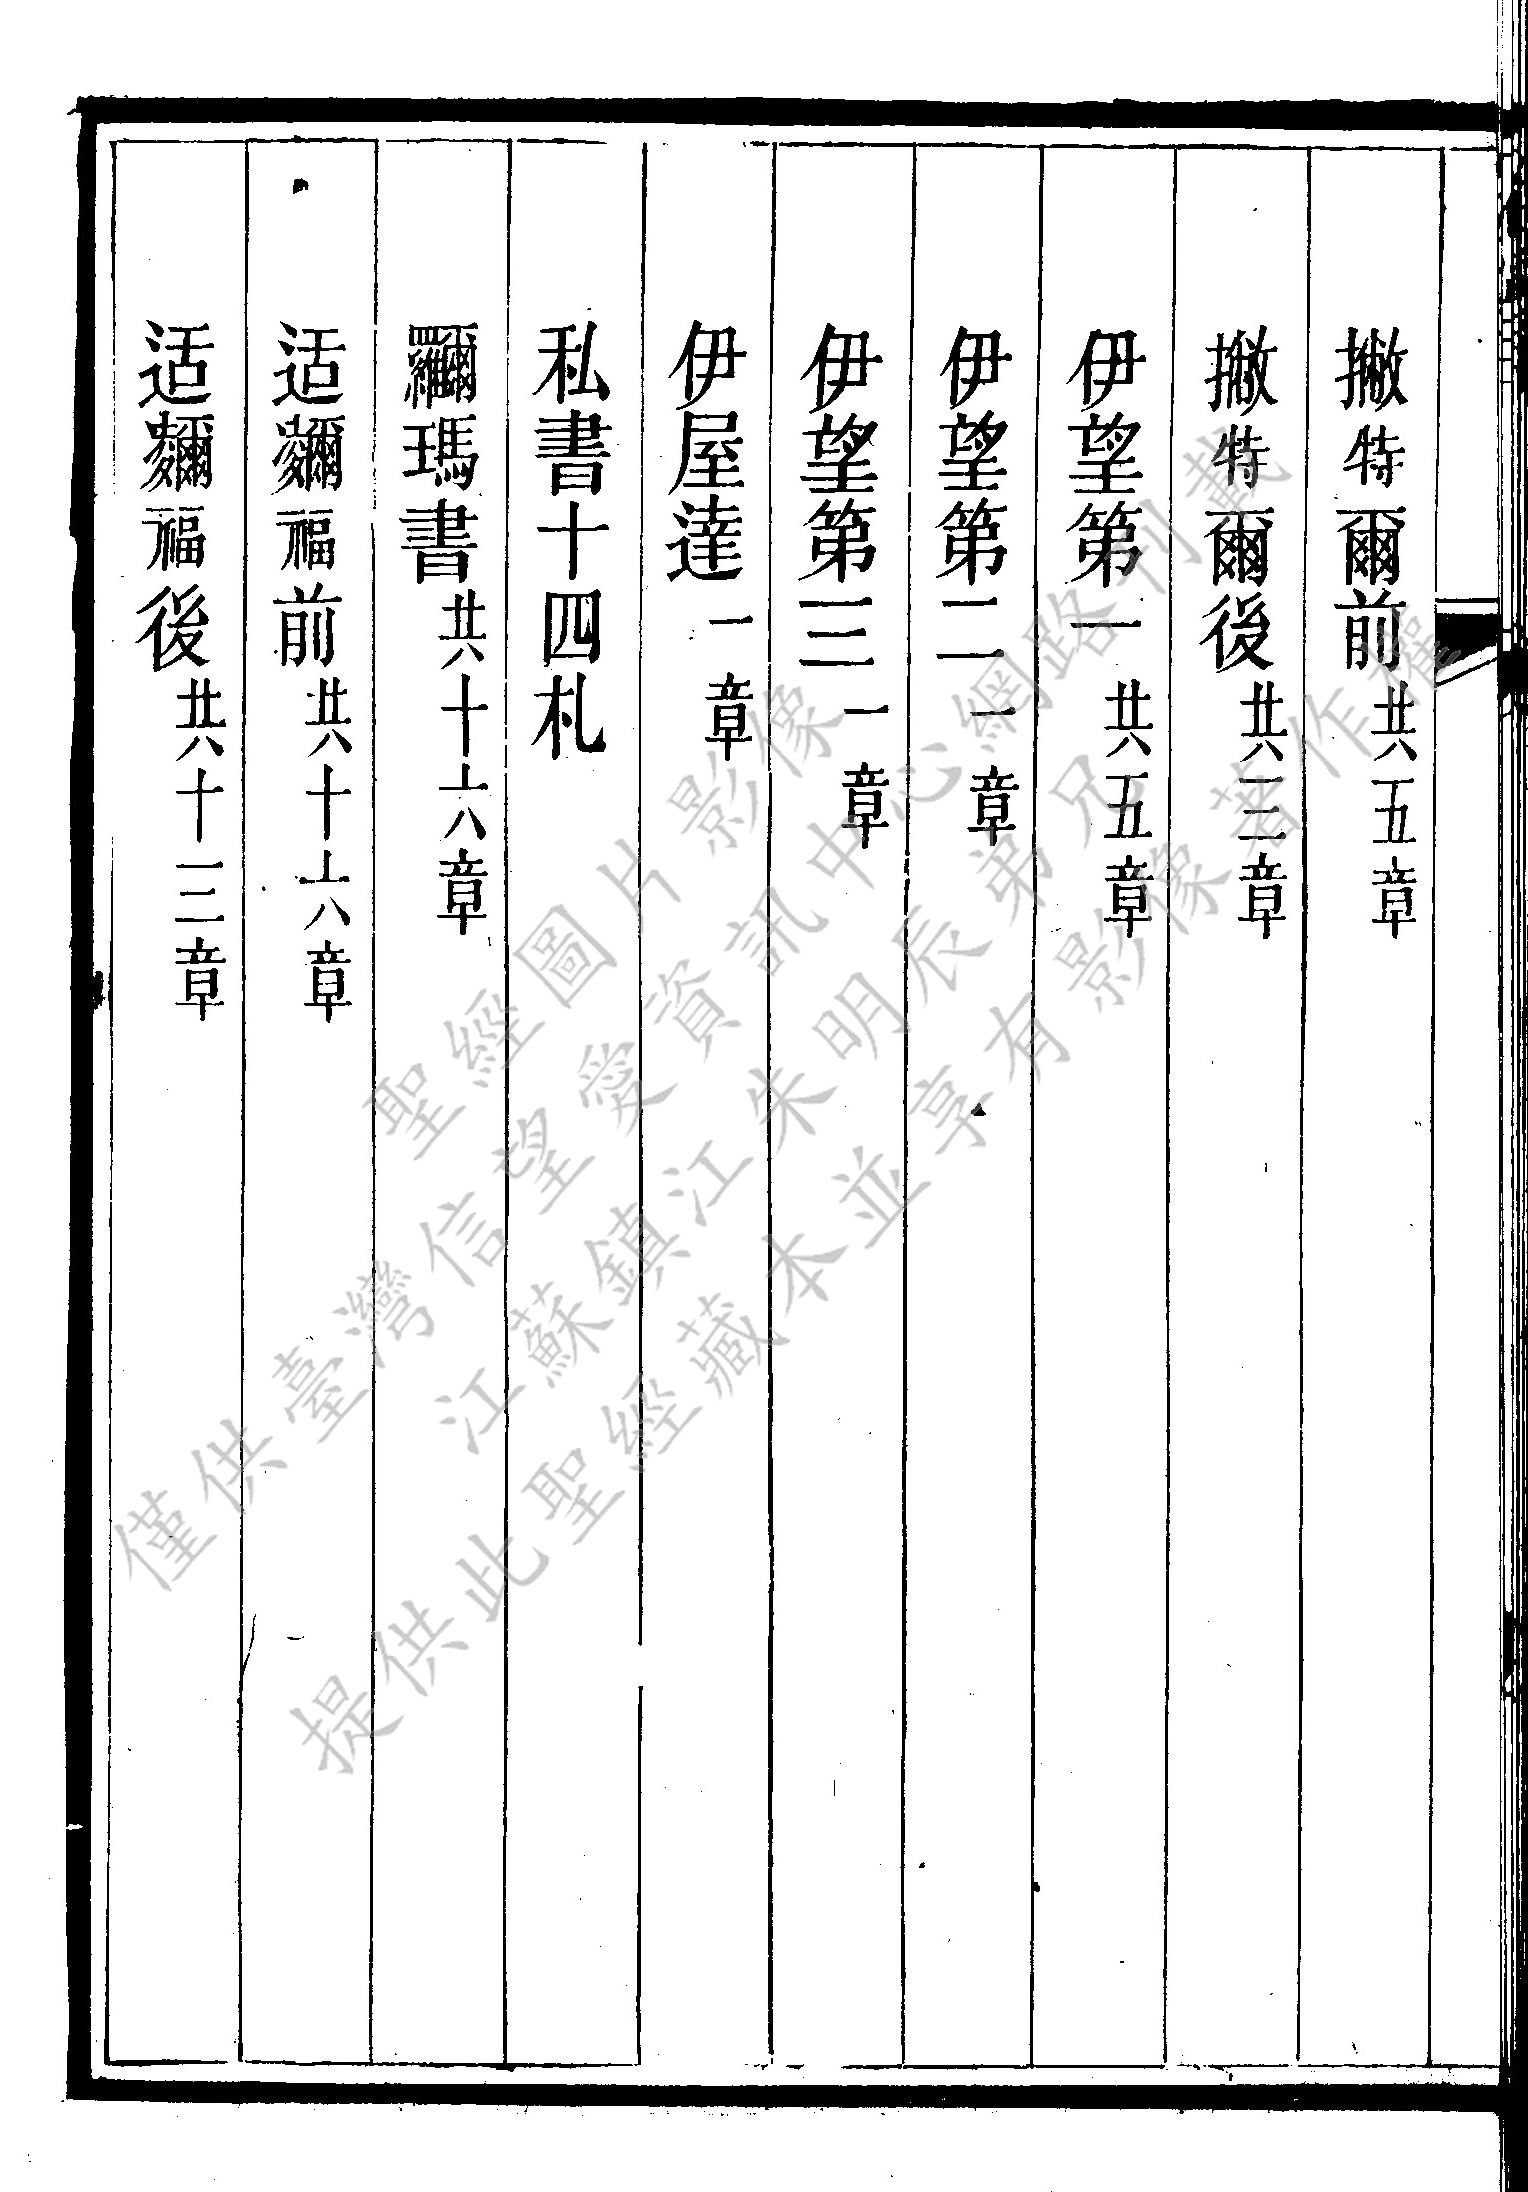 撇特爾前共五章
撇特爾後共三章
伊望第一共五章
伊望第二一章
伊望第三一章
伊屋達一章
私書十四札
羅爾瑪書共十六章
适福前共十六章
适福後共十三章
聖經圖片影像
僅供臺灣信望愛資訊中心網路刊載
江蘇鎮江朱明辰弟兄
提供此聖經藏本並享有影像著作權